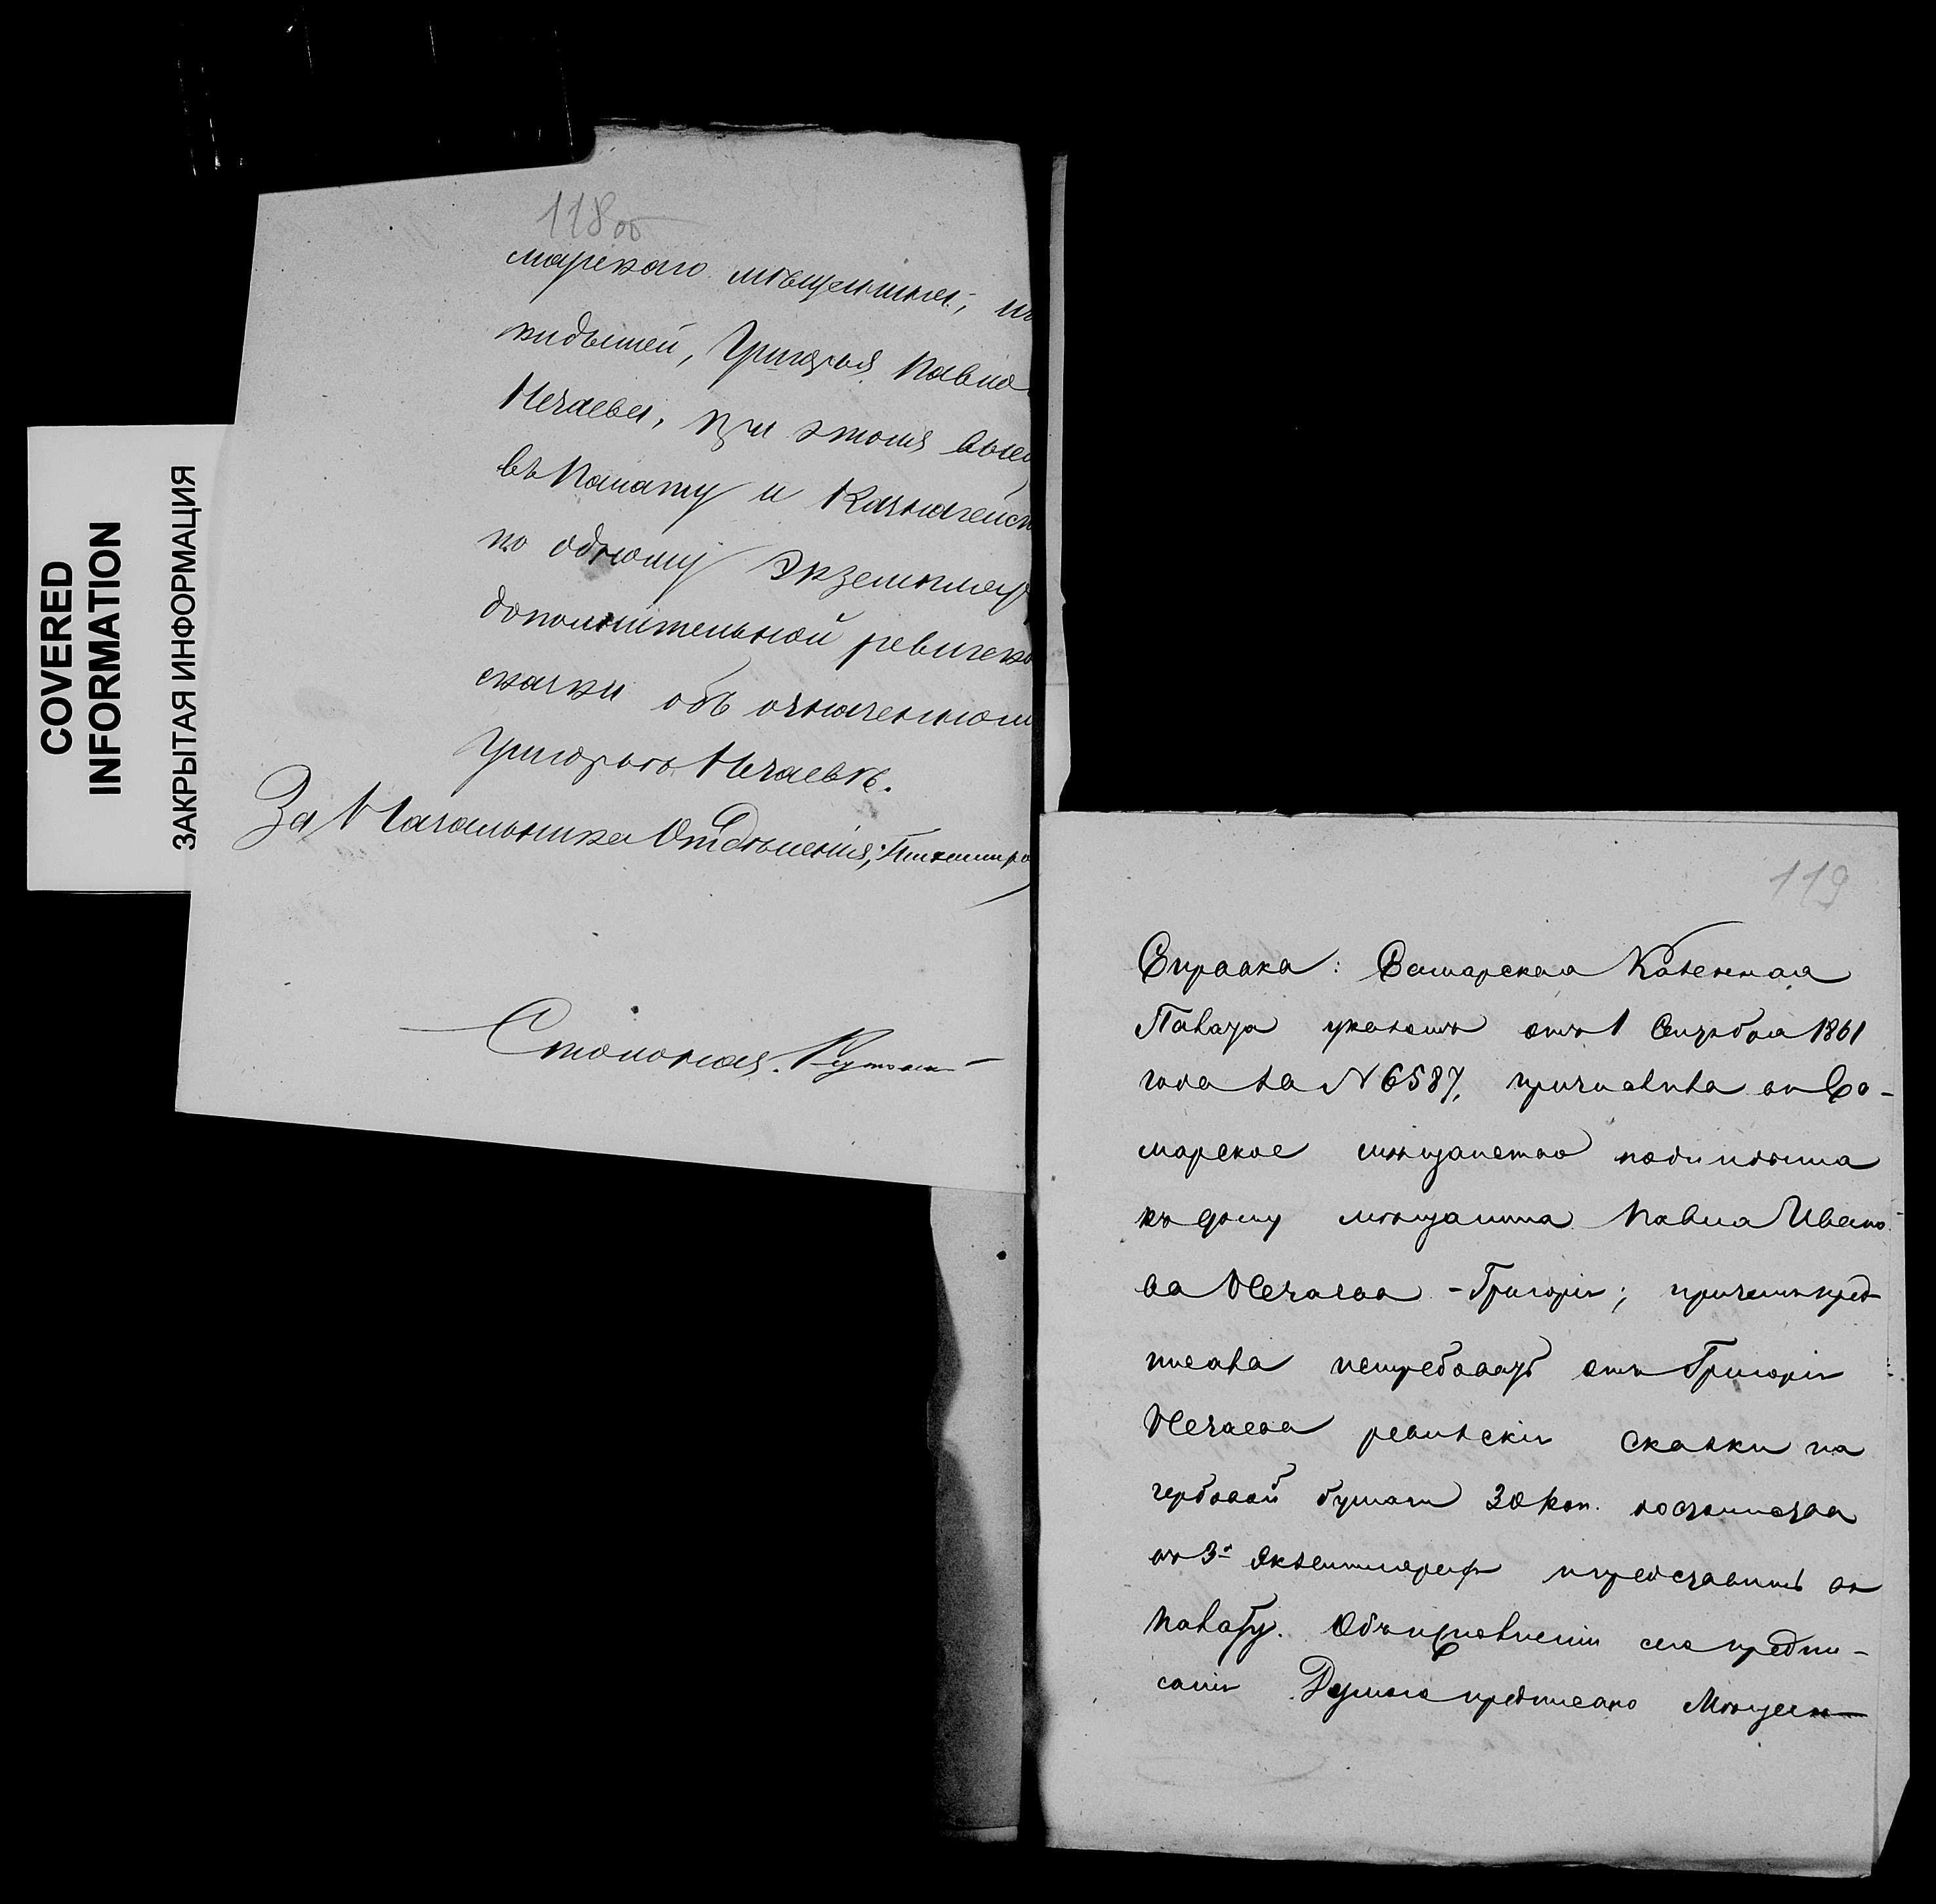 COVERED
INFORMATION
ЗАКРЫТАЯ ИНФОРМАЦИЯ
118 об
марскаго мѣщанина, по
кидышей, Григорья Павло
Нечаева, при этомъ высл
въ Палату и Казначейст
по одному экземпляр
дополнительной ревизско
сказки объ означенном
Григорьѣ Нечаевѣ.
За Начальника Отдѣленія,
Столонач.
119
Справка: Самарская Казенная
Палата указомъ отъ 1 Сентября 1861
года за № 6587, причислила въ Са-
марское мѣщанство подкидыша
къ дому мѣщанина Павла Ивано
ва Нечаева - Григорія; причемъ пред
писала истребовать отъ Григорія
Нечаева ревизскія сказки на
гербовой бумаги 30 коп. достоинства
въ 3х экземплярахъ и представить въ
Палату. Объ исполненіи сего предпи-
санія Думою предписано Мѣщан